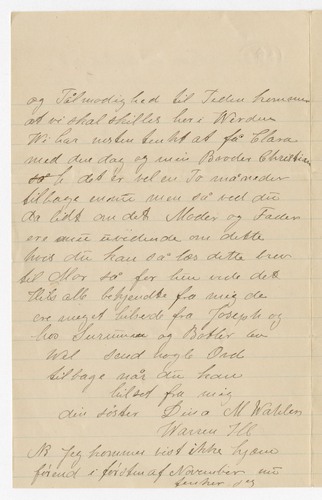 og Tålmodighed til Tiden kommer
at vi skal skilles her i Verden
Wi har nesten tenkt at få Clara
med due dag og min Brooder Christian
det er vel en To måneder
tilbage endnu men så ved du
da lidt om det Moder og Fader
ere uvidende om dette
hvis du kan så læs dette brev
til Mor så får hun vide det
Hils alle bekjendte fra mig de
ere meget hilsede fra Joseph og
hos
Wel send nogle Ord
tilbage når du kan
hilset fra mig
din søster Dina M Wahlen
Warren Ill
NB Jeg kommer vist ikke hjem
førend i første af November nu
tenker jeg